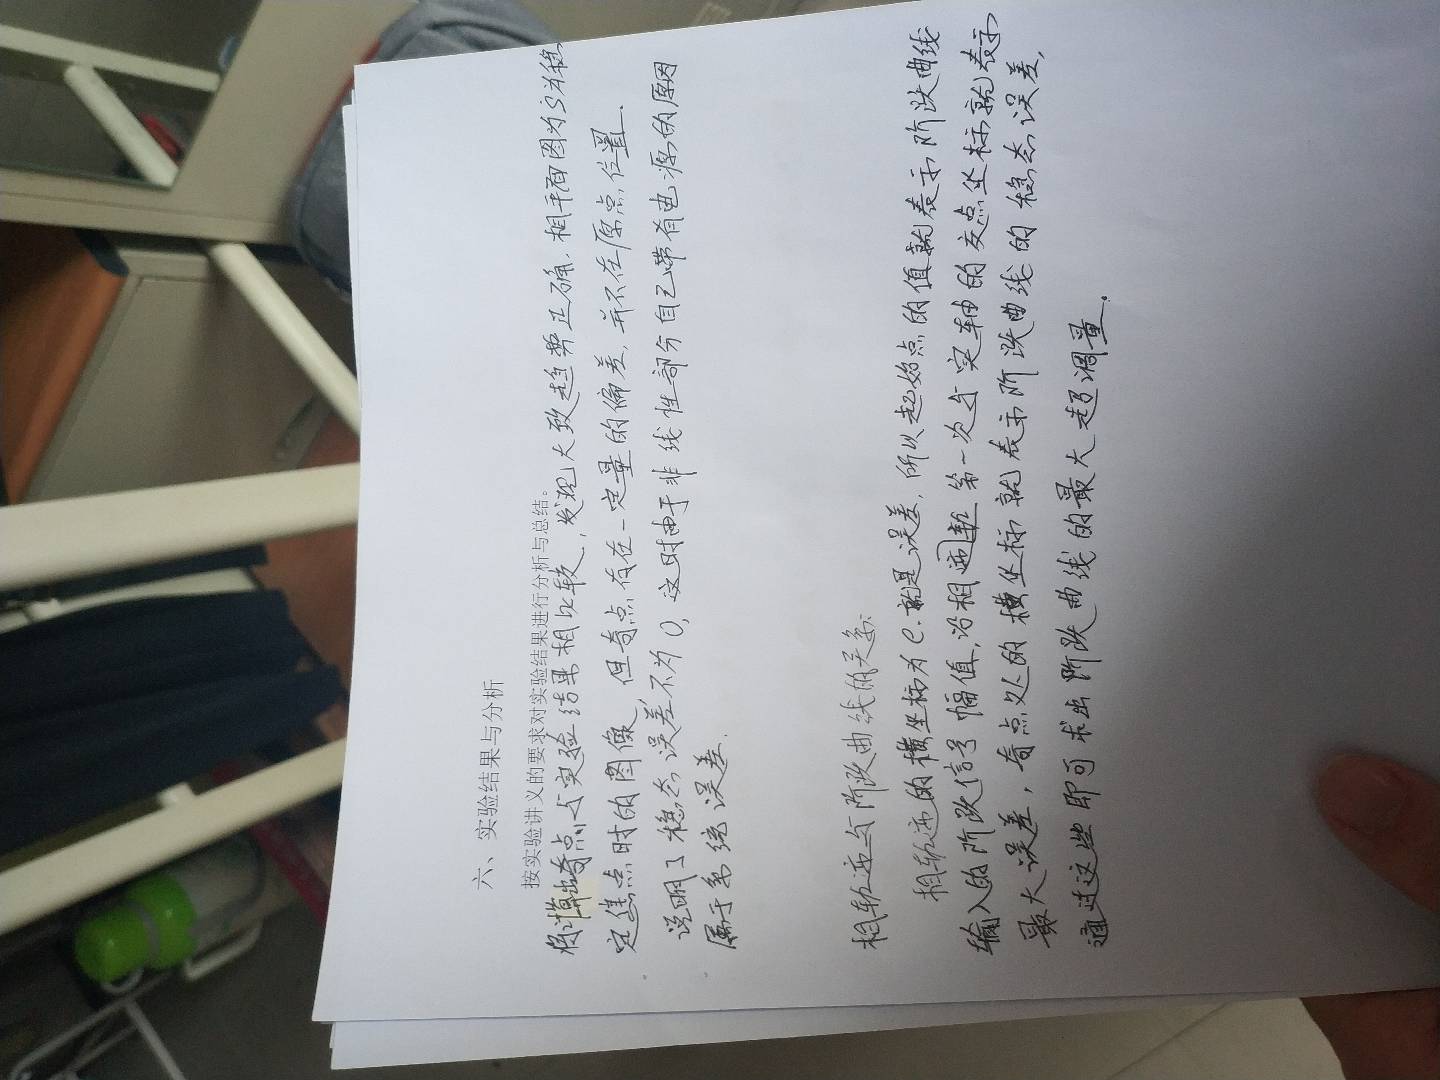 六、实验结果与分析
按实验讲义的要求对实验结果进行分析与总结。
将计算出奇点与实验结果相比较,发现大致趋势正确.相平面图为S为稳
定焦点时的图像,但奇点存在一定量的偏差,并不在原点位置.
说明了稳态误差不为0,这时由于非线性部分自己带有电源的原因
属于系统误差.
相轨迹与阶跃曲线的关系:
相轨迹的横坐标为e.就是误差,所以起始点的值就表示阶跃曲线
输入的阶跃信号幅值,沿相迹轨第一次与实轴的交点坐标就表示
最大误差,奇点处的横坐标就表示阶跃曲线的稳态误差,
通过这些即可求出阶跃曲线的最大超调量.